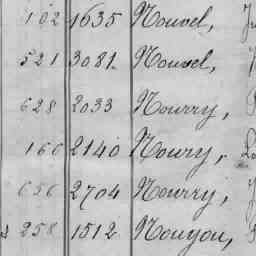 102 1635 Nouvel,
521 3081 Nouvel,
628 2033 Nourry,
166 2140 Noury,
656 2704 Nourry,
258 1512 Nouyou,